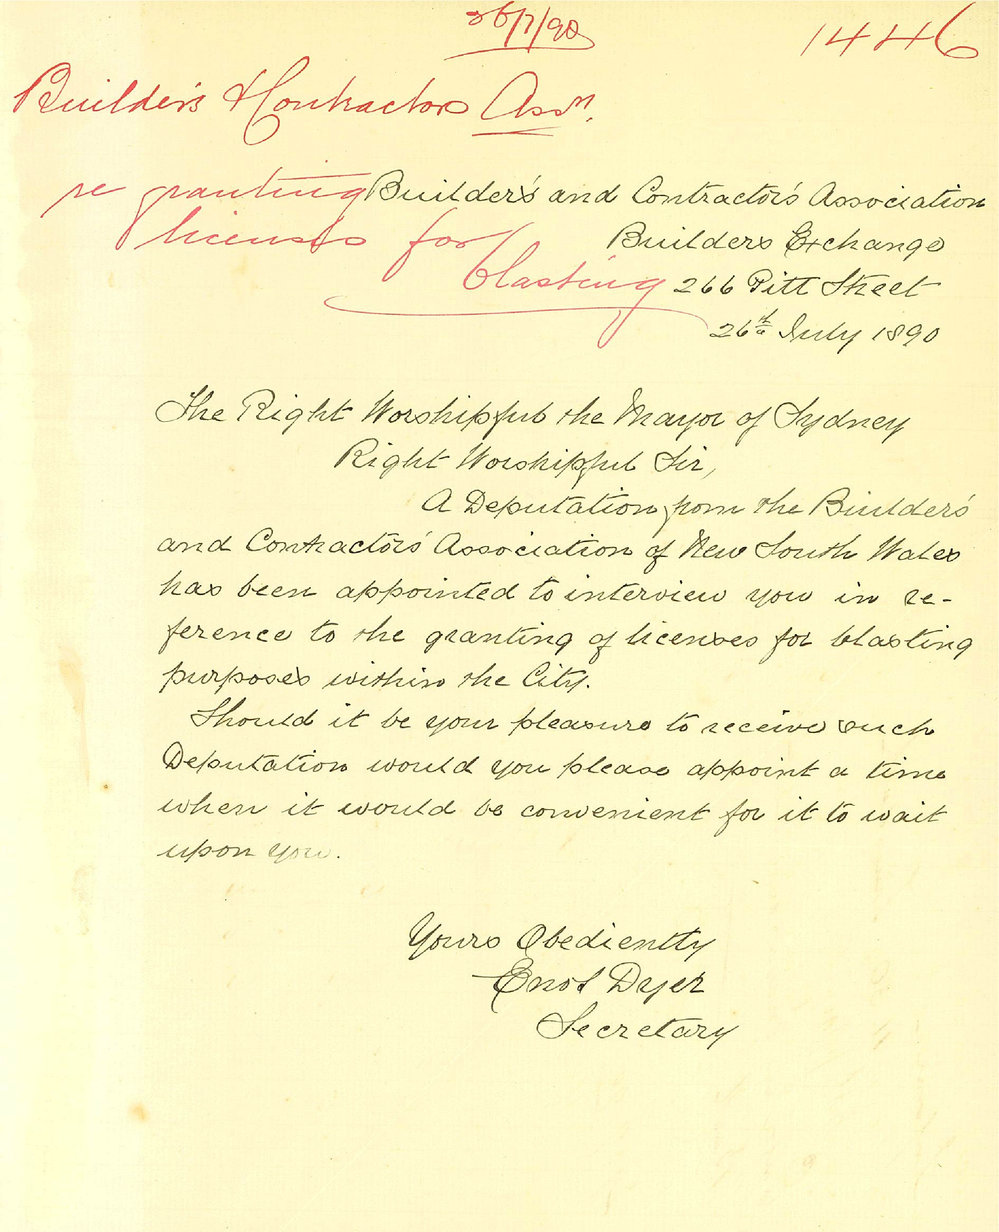 26/7/90
1446
Builder's & Contractors Assn.
re granting
licenses for
blasting
Builder's and Contractor's Association
Builders Exchange
266 Pitt Street
26th July 1890
The Right Worshipful the Mayor of Sydney
Right Worshipful Sir,
A Deputation from the Builder's
and Contractors' Association of New South Wales
has been appointed to interview you in re-
ference to the granting of licenses for blasting
purposes within the City.
Should it be your pleasure to receive such
Deputation would you please appoint a time
when it would be convenient for it to wait
upon you.
Yours Obediently
Enos Dyer
Secretary